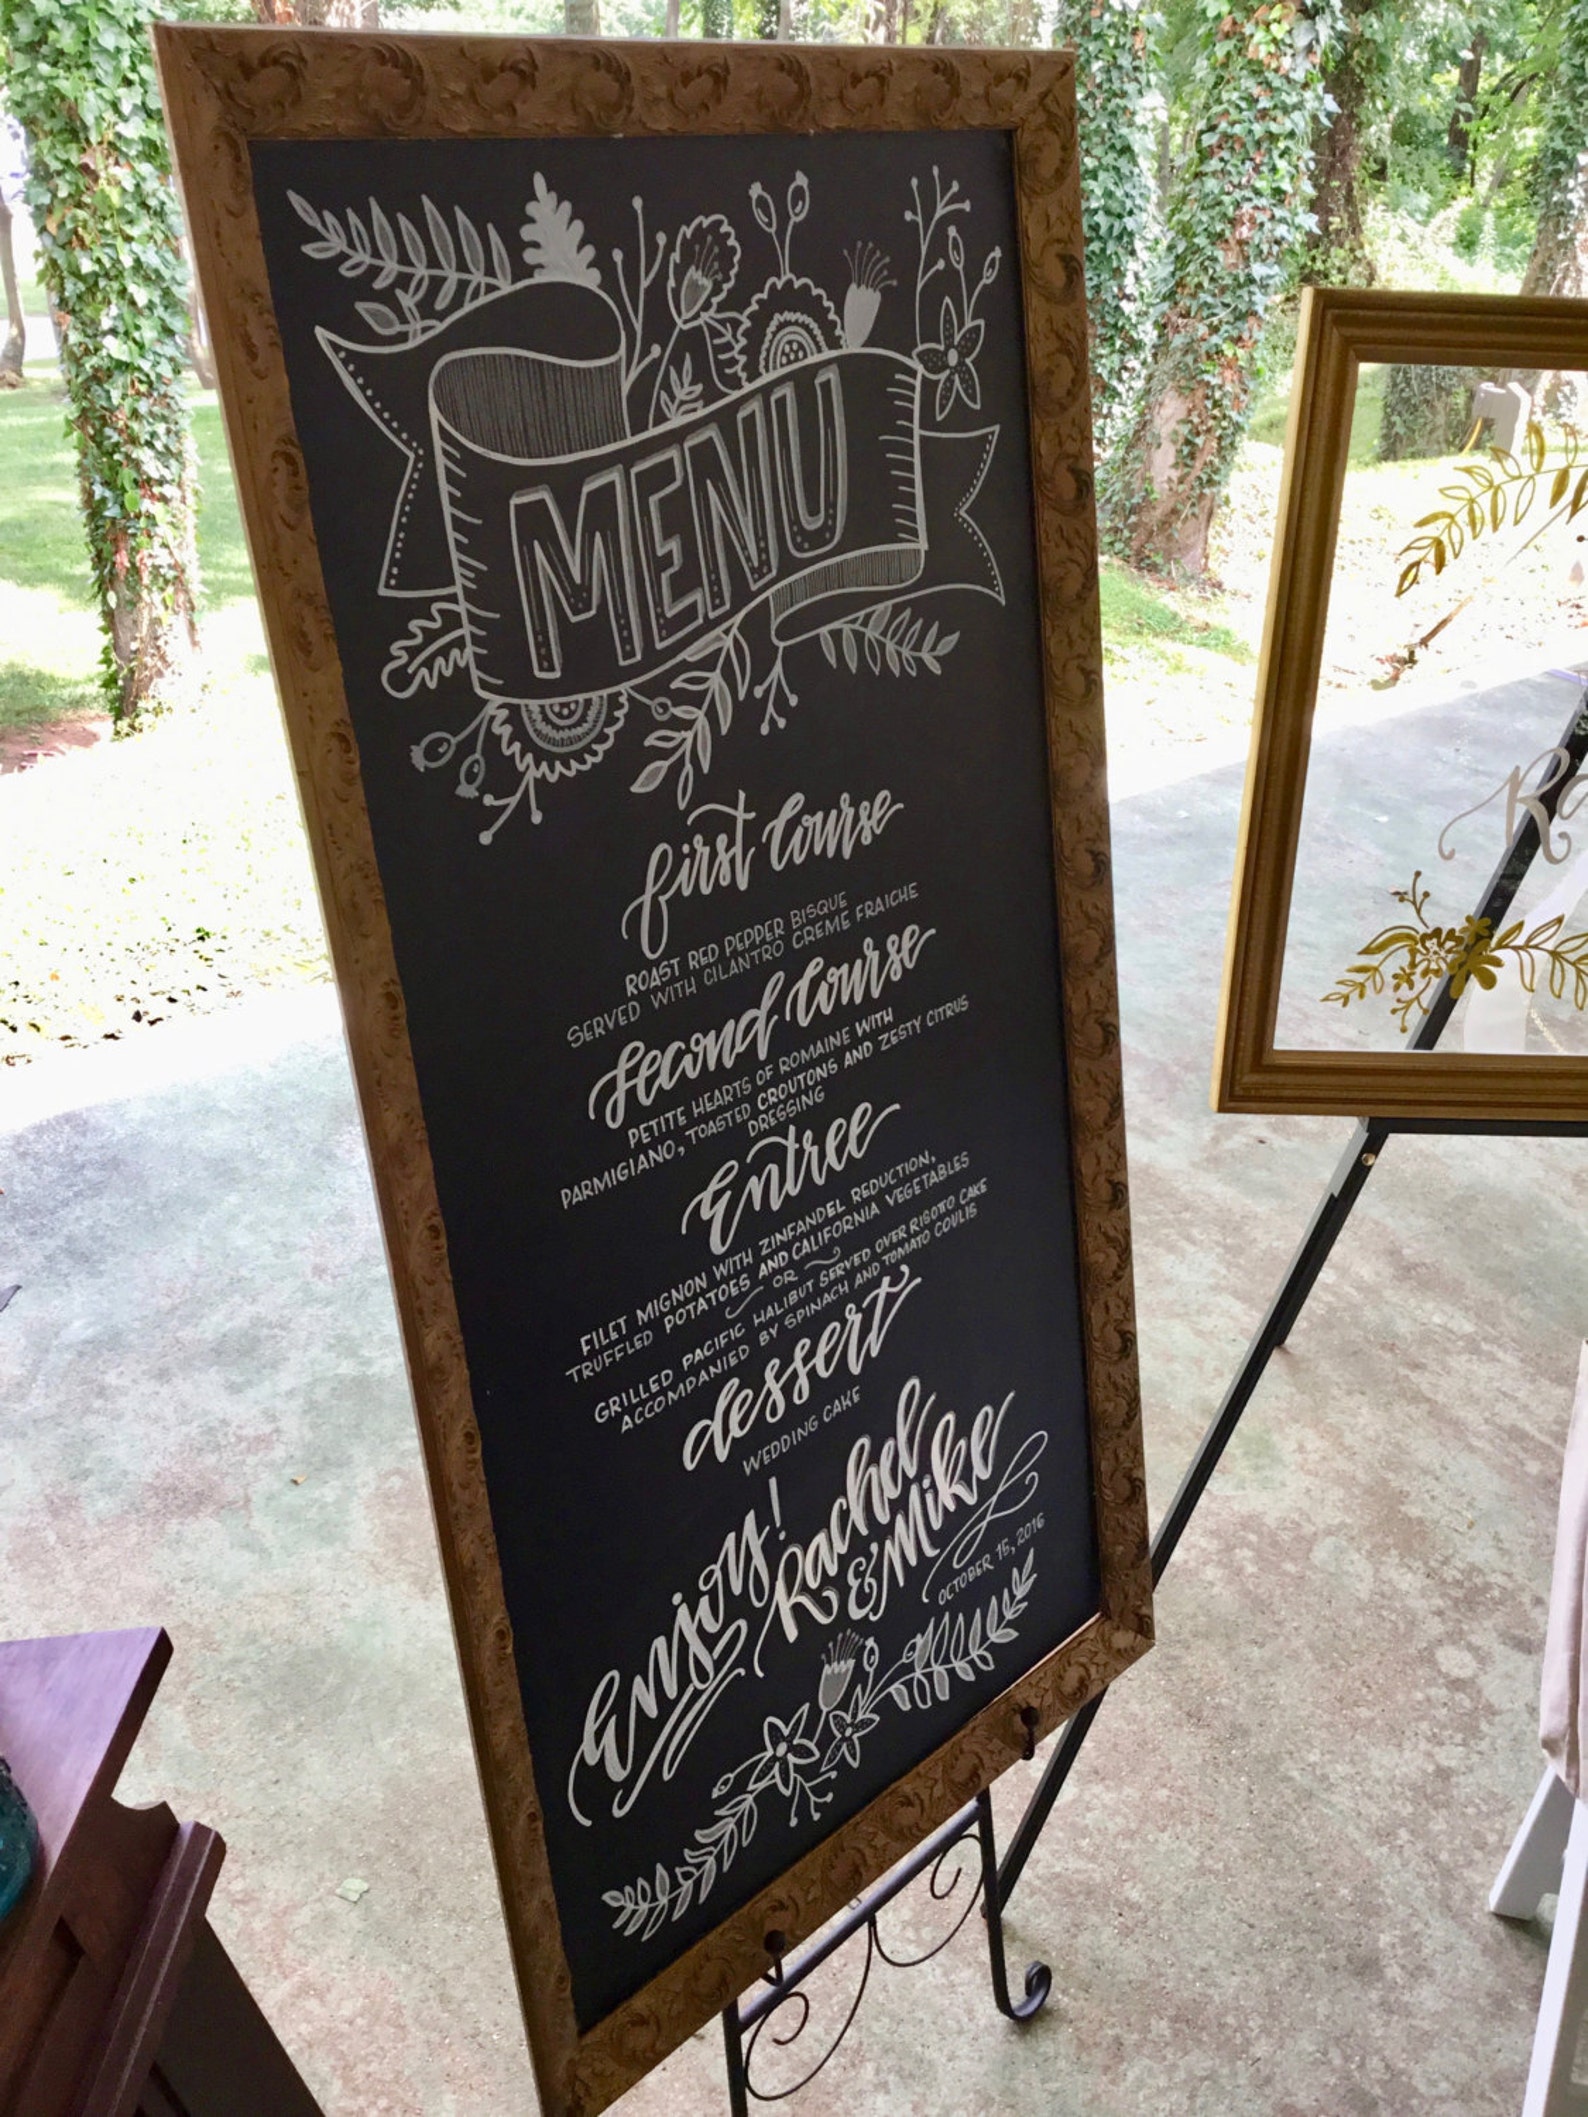 MENU
first course
ROAST RED PEPPER BISQUE
SERVED WITH CILANTRO CREME FRAICHE
second course
PETITE HEARTS OF ROMAINE WITH
PARMIGIANO, TOASTED CROUTONS AND ZESTY CITRUS
DRESSING
Entree
FILET MIGNON WITH ZINFANDEL REDUCTION,
TRUFFLED POTATOES AND CALIFORNIA VEGETABLES
OR
GRILLED PACIFIC HALIBUT SERVED OVER RISOTTO CAKE
ACCOMPANIED BY SPINACH AND TOMATO COULIS
dessert
WEDDING CAKE
Enjoy!
Rachel
& Mike
OCTOBER 15, 2016